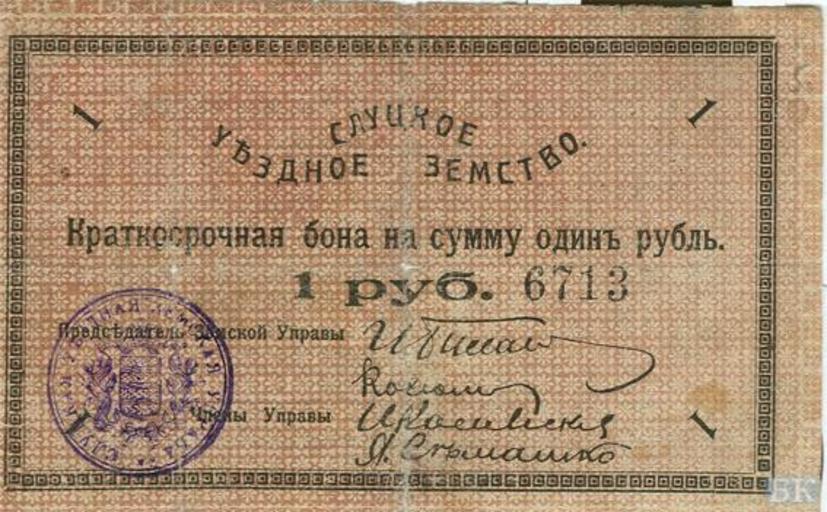 1 1
СЛУЦКОЕ
УѢЗДНОЕ ЗЕМСТВО.
Краткосрочная бона на сумму одинъ рубль.
1 руб. 6713
Предсѣдатель Земской Управы
Члены Управы
1 1
СЛУЦКАЯ УѢЗДНАЯ ЗЕМСКАЯ УПРАВА
ВК